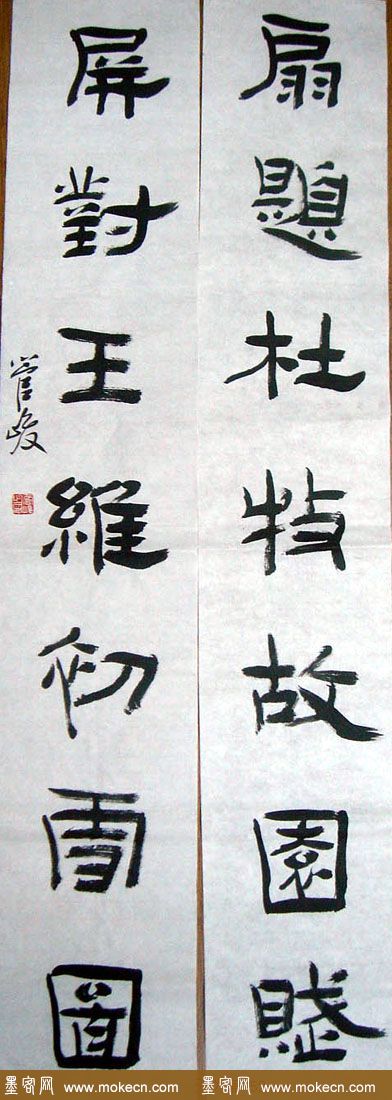 扇題杜牧故園賦
屏對王維初雪圖
管峻
墨客网 www.mokecn.com 墨客网 www.mokecn.com